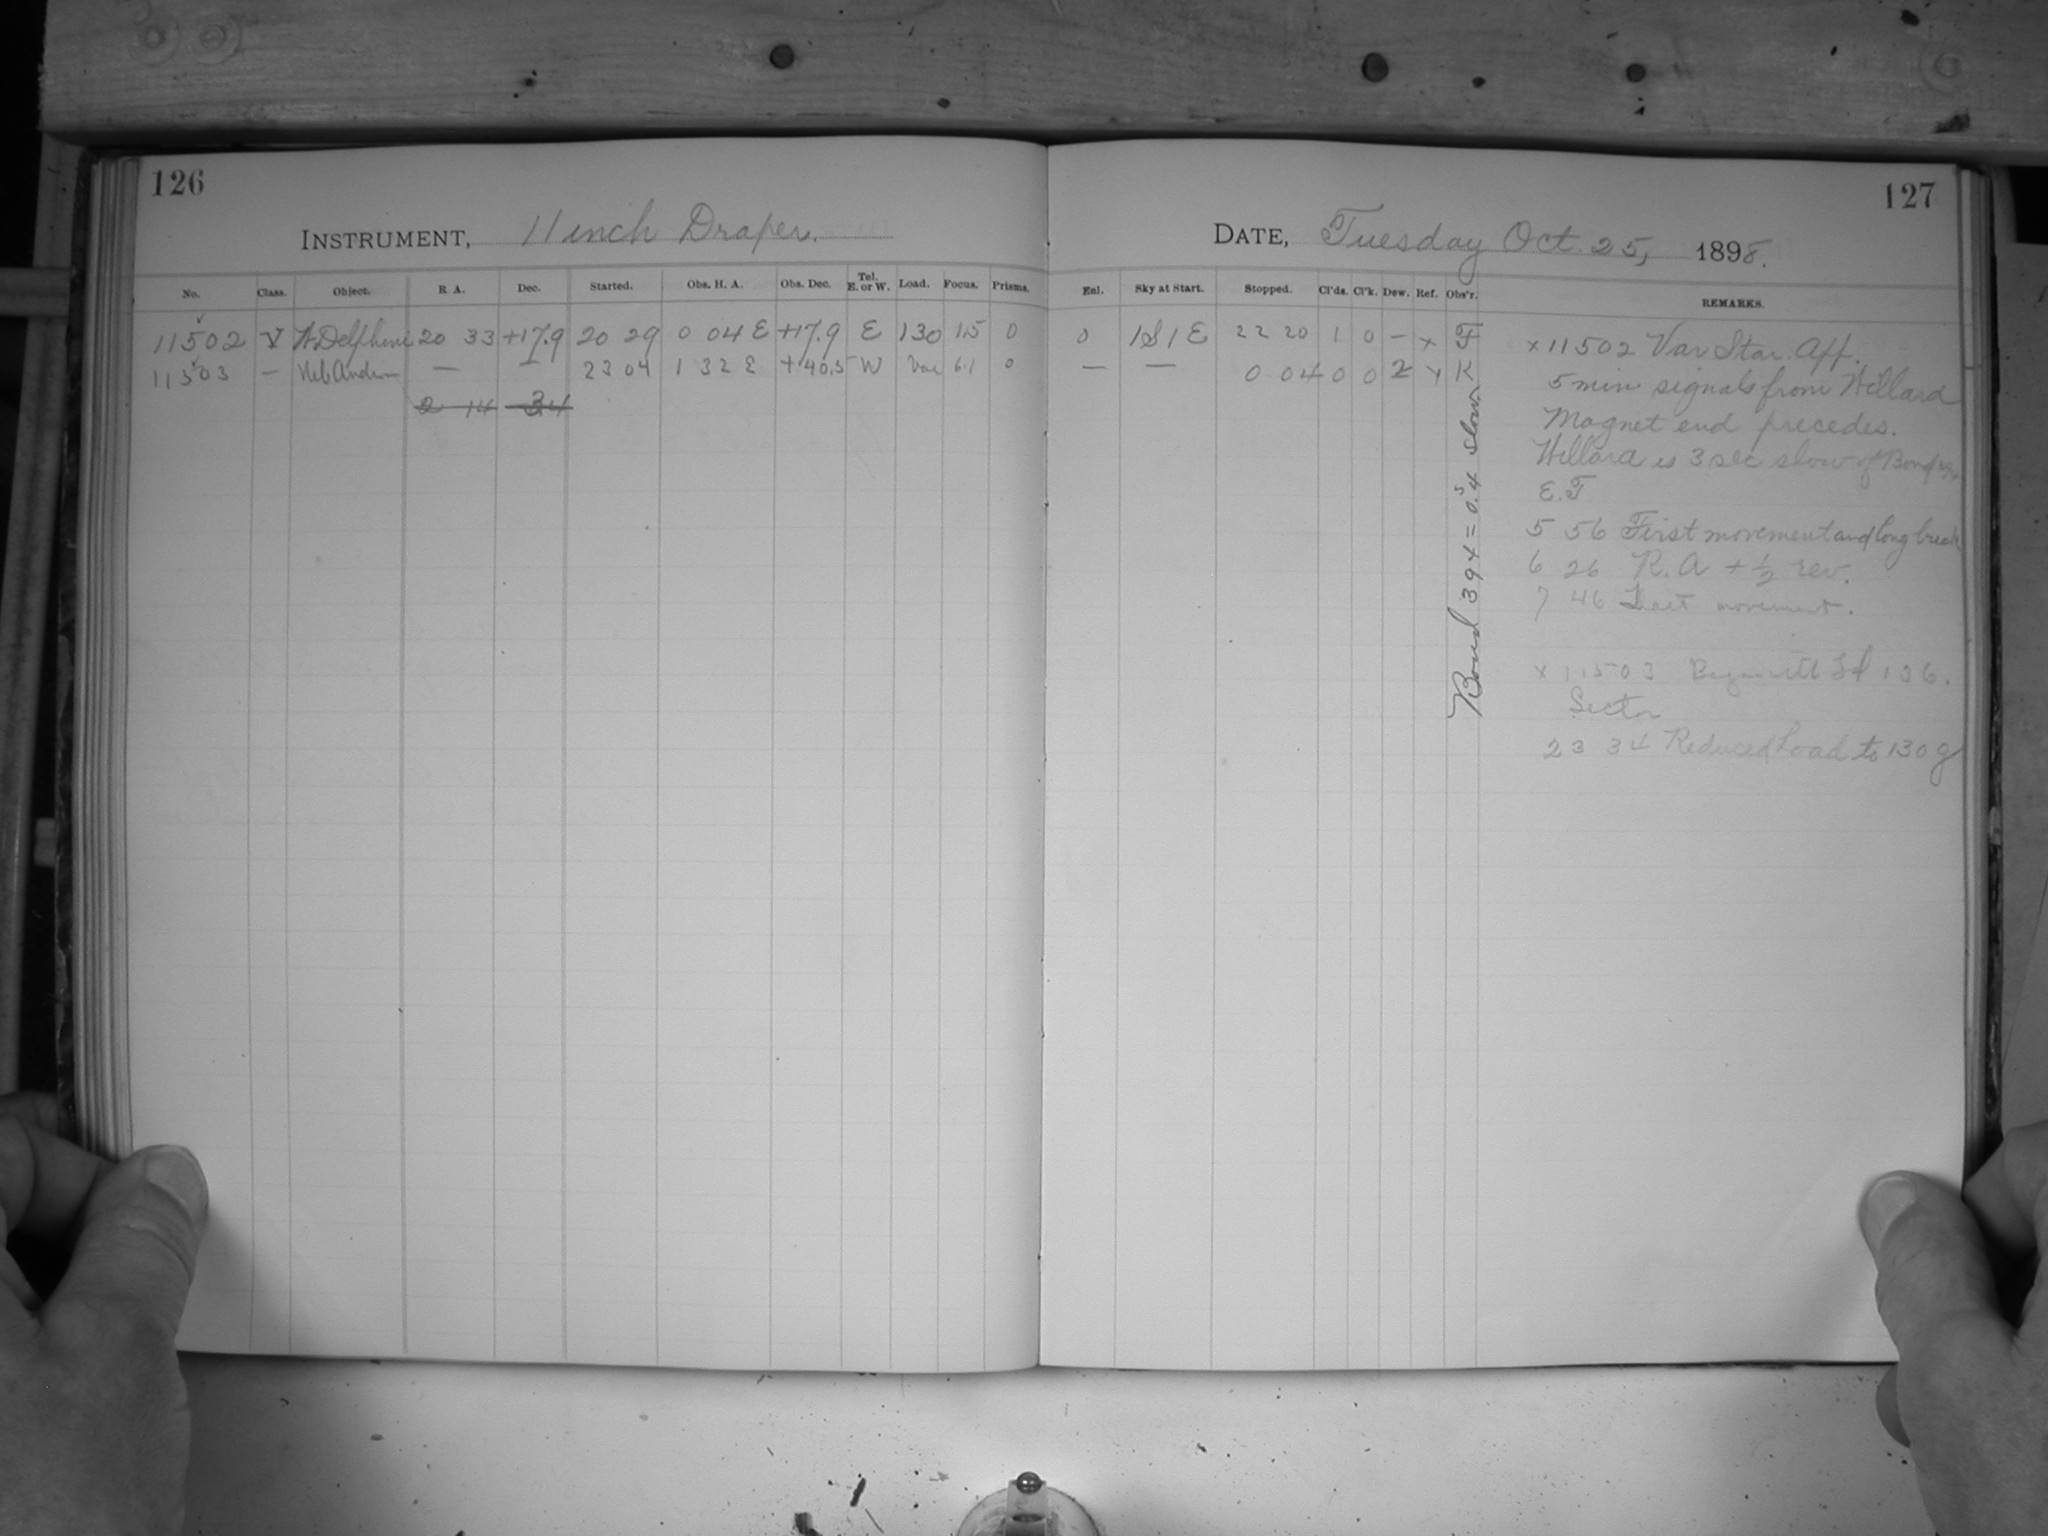 126
INSTRUMENT, 11 inch Draper.
No. Class. Object. R. A. Dec. Started. Obs. H. A. Obs. Dec. Tel. E. or W. Load. Focus. Prisms.
11502 V W. Delphini 20 33 +17.9 20 29 0 04 E +17.9 E 130 0
11503 — Neb Androm — — 23 04 1 32 E +40.5 W Var 6.1 0
2 14 34
127
DATE, Tuesday Oct. 25, 1898.
Enl. Sky at Start. Stopped. Cl'ds. Cl'k. Dew. Ref. Obs'r. REMARKS.
0 1S 1E 22 20 1 0 — x F
— — 0 04 0 0 2 x K
Bond 394 = 0.ˢ4 slow
x 11502 Var Star. App.
5 min signals from Willard
Magnet end precedes.
Willard is 3 sec slow of Bond
E. F
5 56 First movement and long break
6 26 R. A + ½ rev.
7 46 Last movement.
x 11503 Began with Ld 136.
Sector
23 34 Reduced Load to 130 g